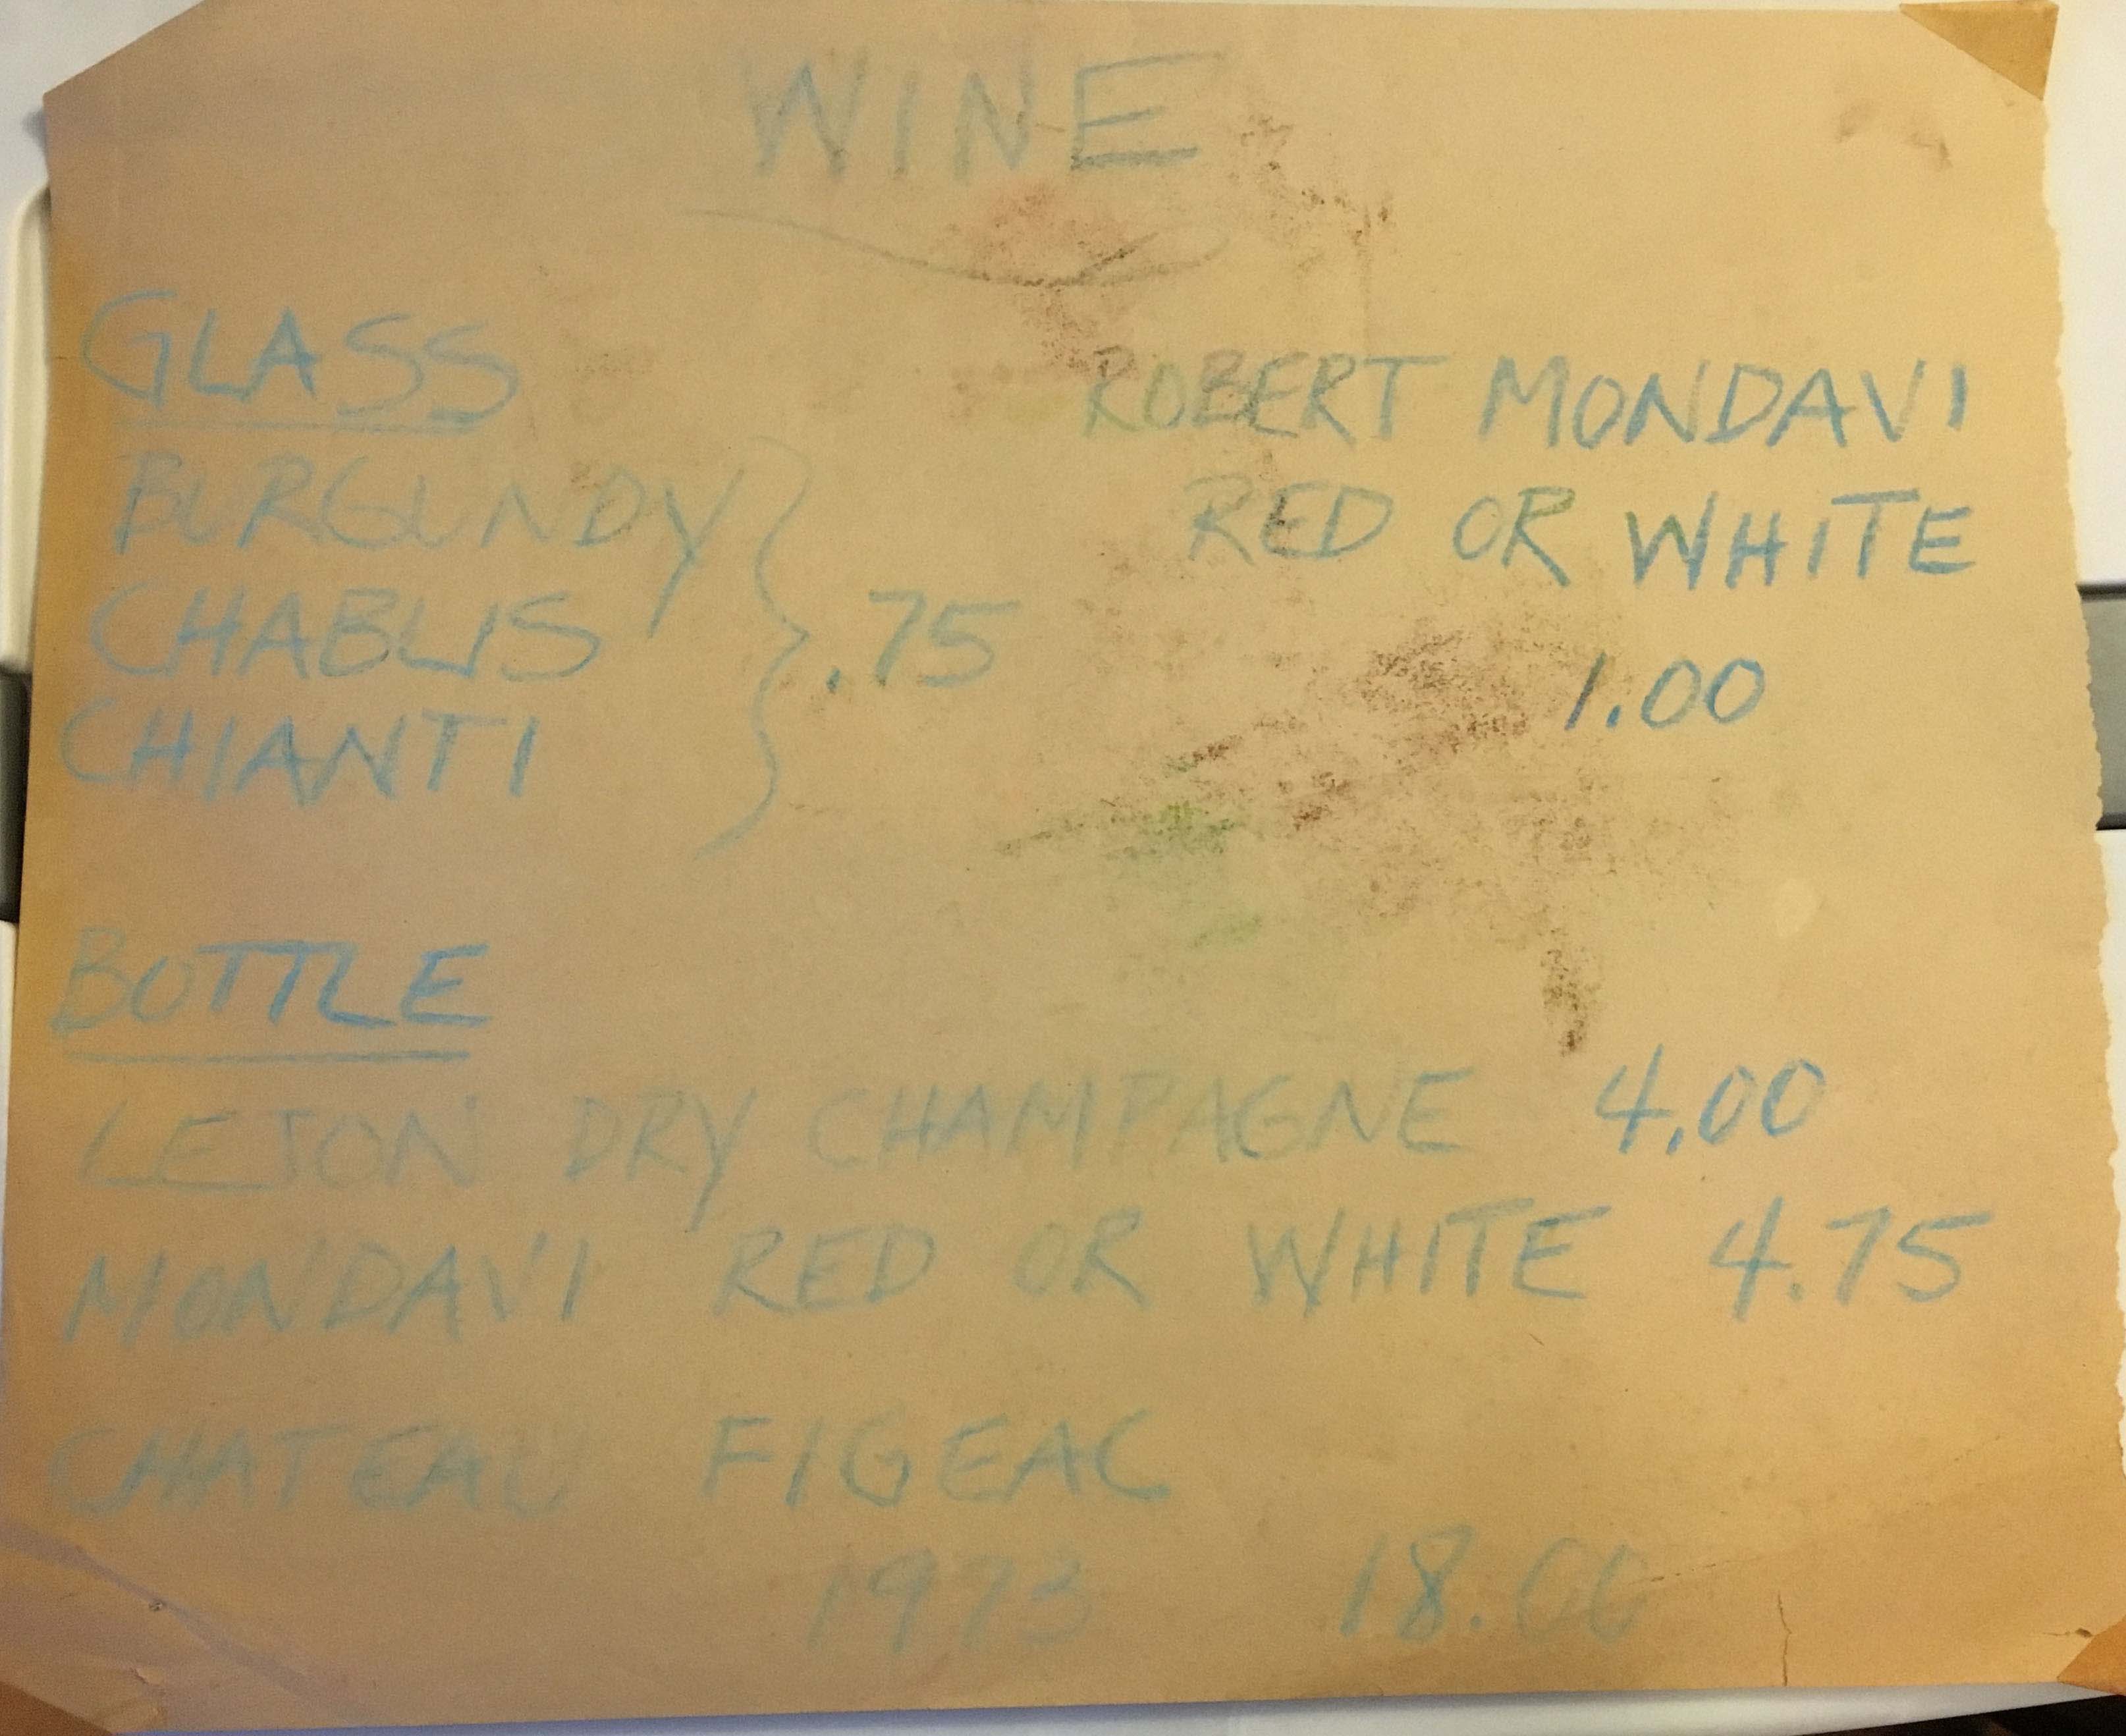 WINE
GLASS
BURGUNDY
CHABLIS
CHIANTI
.75
ROBERT MONDAVI
RED OR WHITE
1.00
BOTTLE
LEJON DRY CHAMPAGNE 4.00
MONDAVI RED OR WHITE 4.75
CHATEAU FIGEAC
1973 18.00